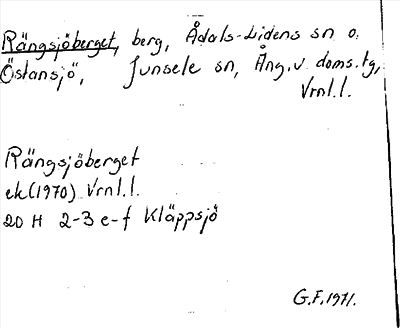 Rängsjöberget, berg, Ådals-Lidens sn o.
Östansjö, Junsele sn, Ång.v doms.tg,
Vrnl.l.
Rängsjöberget
ek(1970) Vrnl.l.
20 H 2-3 e-f Kläppsjö
G.F.1971.